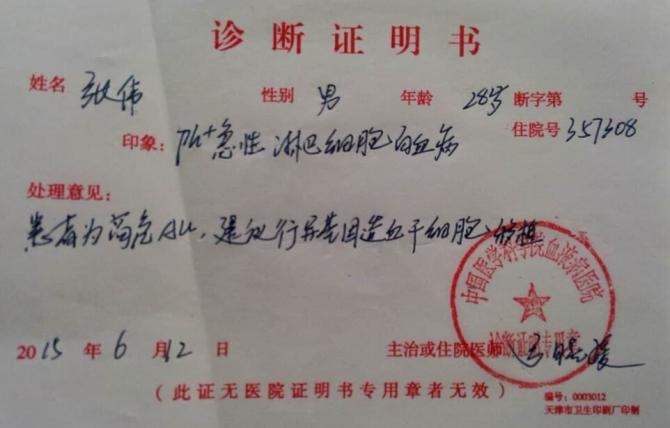 诊断证明书
姓名 张伟 性别 男 年龄 28岁 断字第 号
印象: Ph+急性淋巴细胞白血病 住院号 357308
处理意见:
患者为高危ALL,建议行异基因造血干细胞移植
中国医学科学院血液病医院
诊断证明专用章
2015 年 6 月 12 日 主治或住院医师
(此证无医院证明书专用章者无效)
编号: 0003012
天津市卫生印刷厂印制